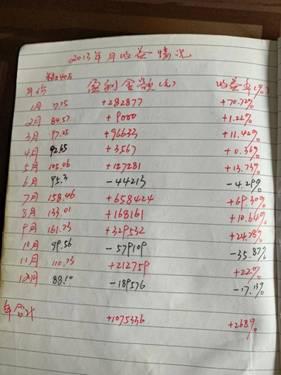 2013年月收益情况
月份 盈利金额(元) 收益率(%)
1月 +282877 +70.72%
2月 80.57 +9000 +1.22%
3月 97.25 +96633 +11.42%
4月 +3567 +0.36%
5月 105.06 +127281 +13.73%
6月 95.3 -44213 -4.29%
7月 158.46 +658424 +69.30%
8月 133.01 +168161 +10.66%
9月 161.73 +329532 +24.28%
10月 99.56 -579109 -35.87%
11月 110.73 +212759 +22%
12月 88.10 -189576 -17.13%
年合计 +1075336 +268%